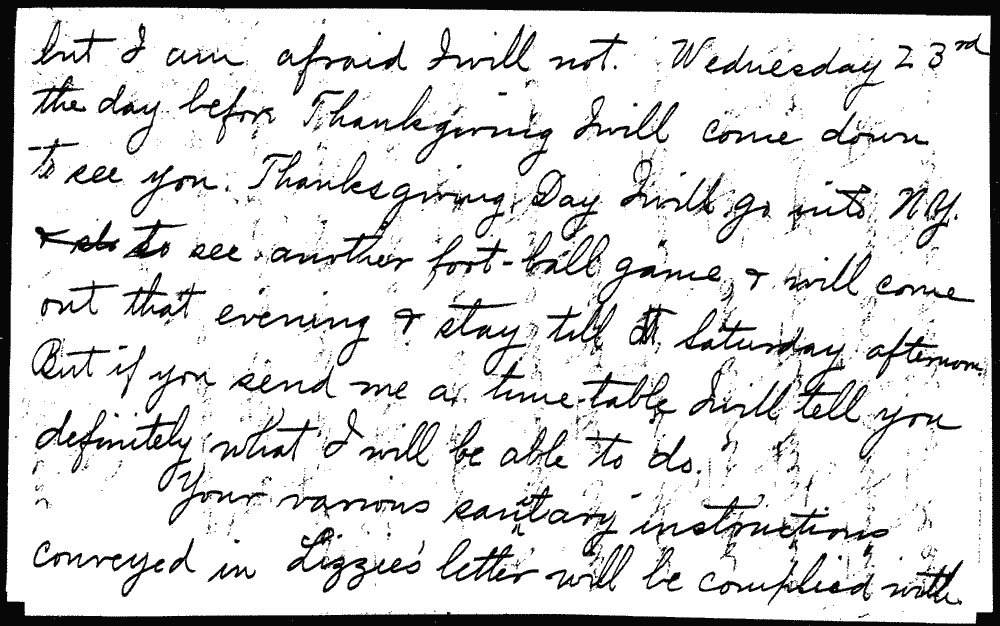 but I am afraid I will not. Wednesday 23rd
the day before Thanksgiving I will come down
to see you. Thanksgiving Day I will go into N.Y.
to see another foot-ball game, & will come
out that evening & stay till Saturday afternoon.
But if you send me a time-table I will tell you
definitely what I will be able to do.
Your various sanitary instructions
conveyed in Lizzie's letter will be complied with.